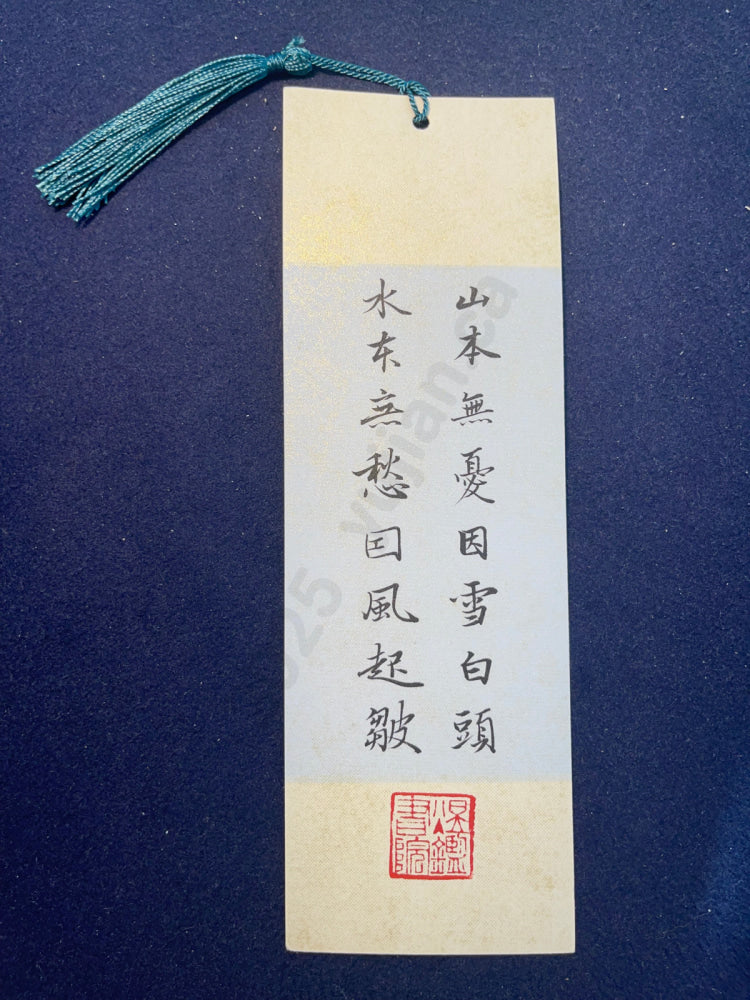 山本無憂因雪白頭
水本無愁因風起皺
鑑書院
025 yujian.ca